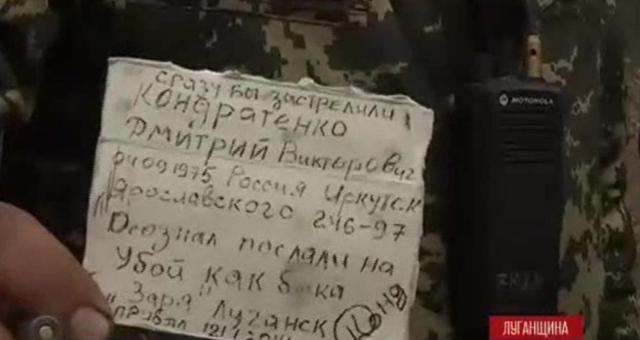 сразу бы застрелили
Кондратенко
Дмитрий Викторович
04091975 Россия Иркутск
Ярославского 246-97
Осознал послали на
убой как быка
"Заря" Луганск
Коня
MOTOROLA
ЛУГАНЩИНА